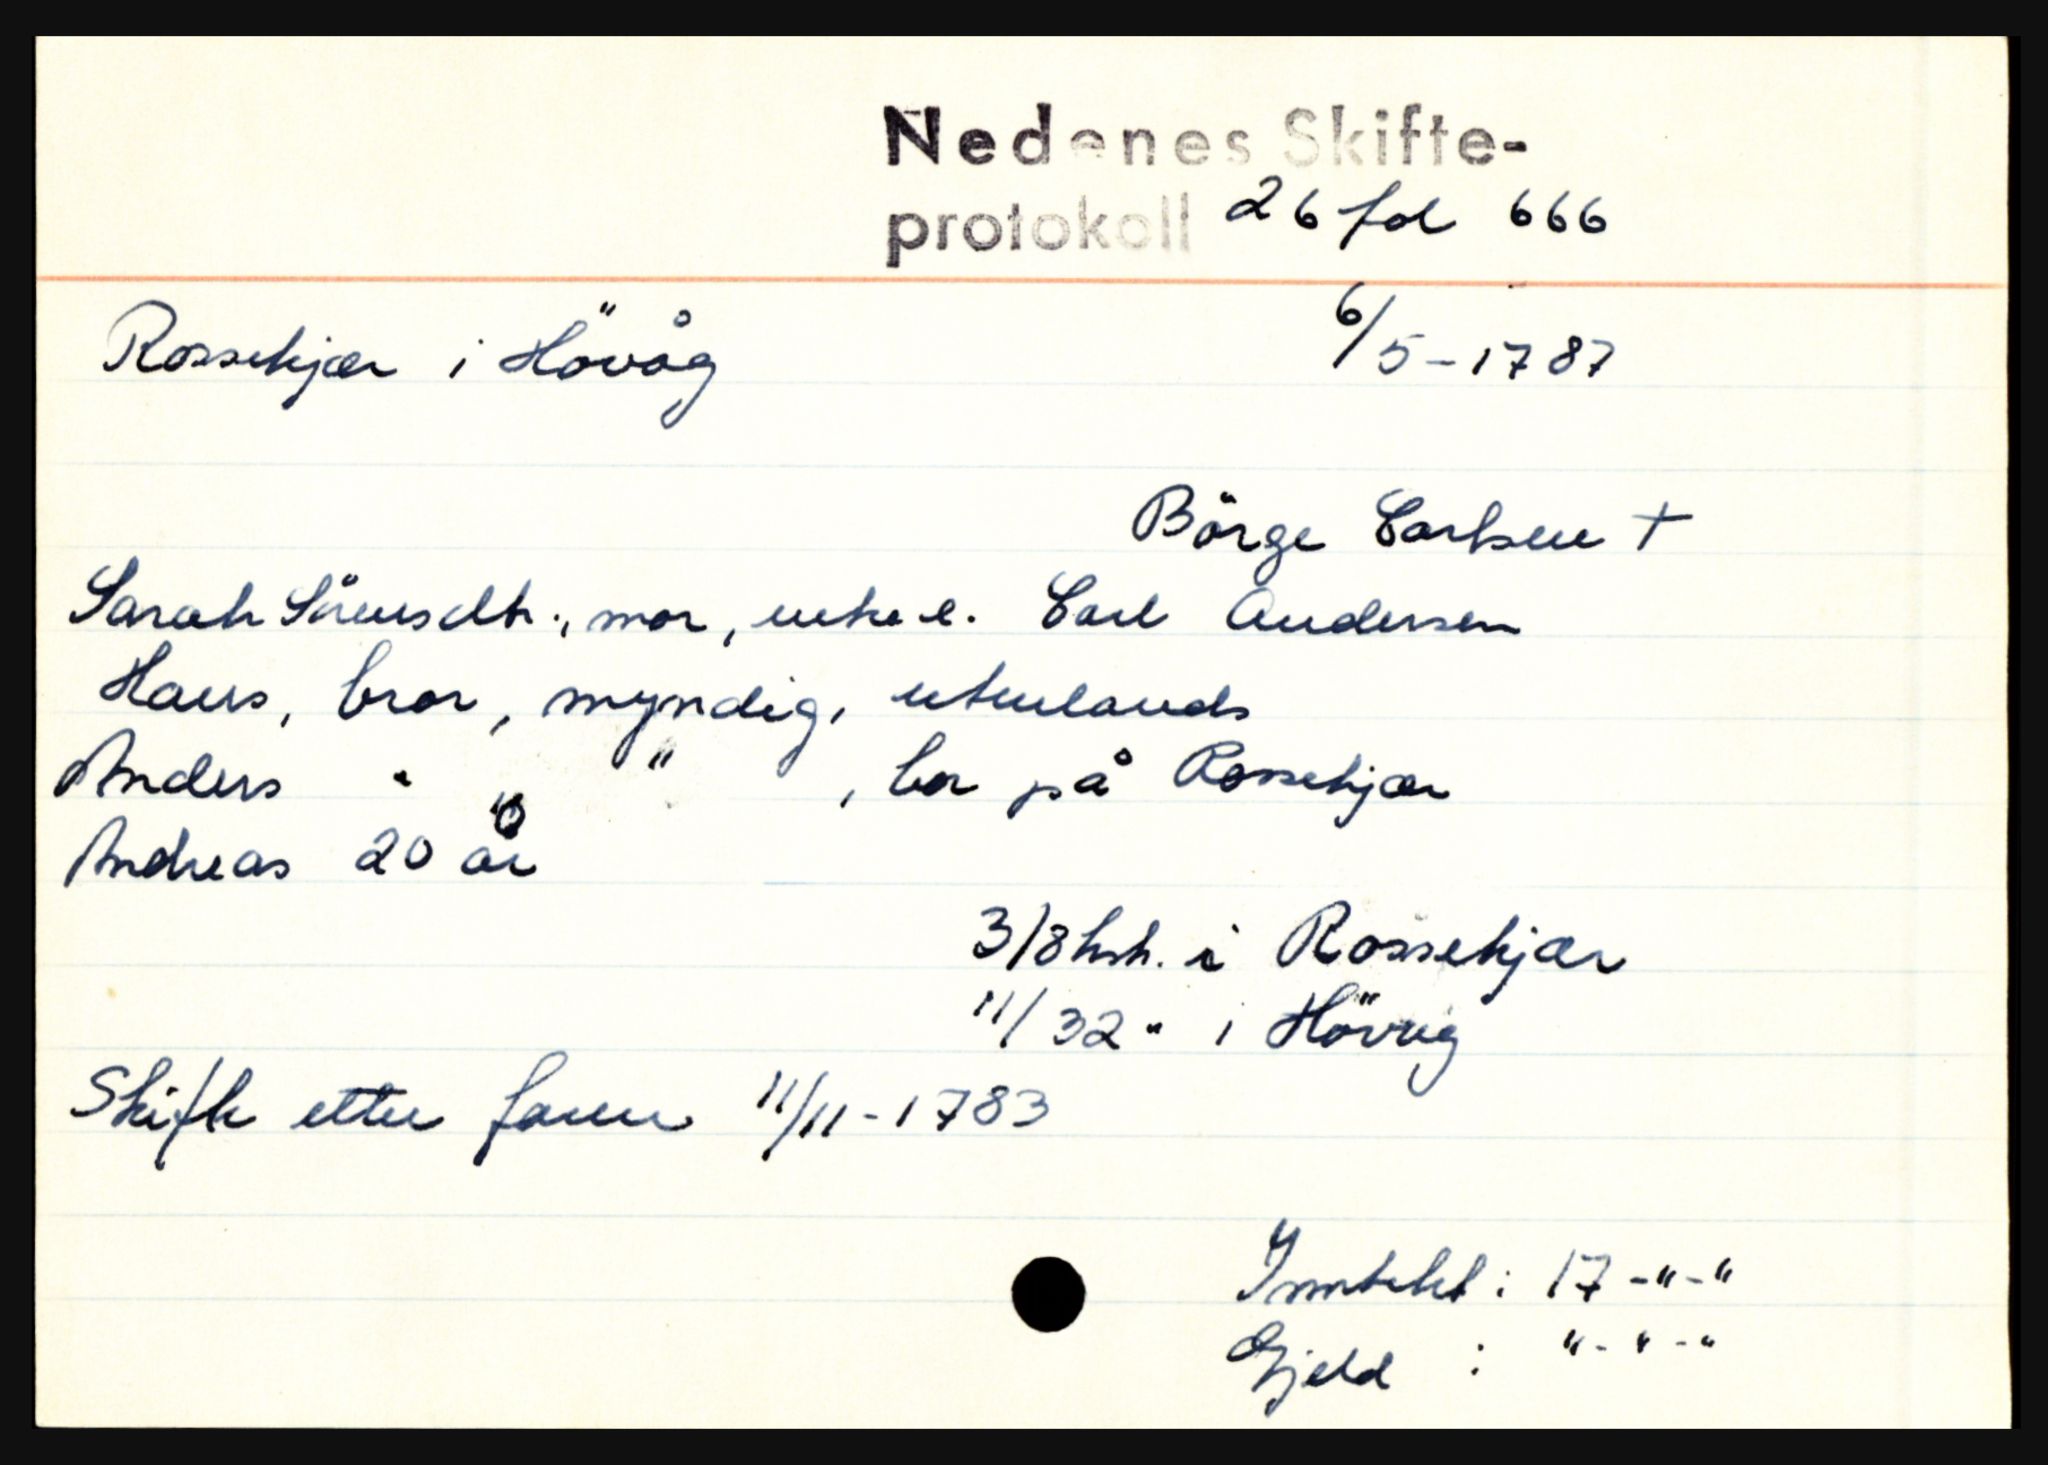 Nedenes Skifte-
protokoll 26 fol 666
Rossekjær i Hövåg 6/5-1787
Börge Carlsen +
Sarah Sörensdtr., mor, enke e. Carl Andersen
Hans, bror, myndig, utenlands
Anders " " , bor på Rossekjær
Andreas " 20 år
3/8 hsh. i Rossekjær
11/32 " i Hövåg
Skifte etter faren 11/11-1783
Inntekt: 17-"-"
Gjeld : "-"-"